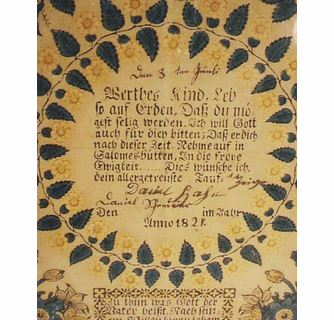 Den 3 ten Juli
Werthes Kind. Leb
so auf Erden, Daß du mö-
gest selig werden. Ich will Gott
auch für dich bitten; Daß er dich
nach dieser Zeit. Nehme auf in
Salomeshütten, In die frohe
Ewigkeit..... Dies wünsche ich,
dein allergetreuste Tauf-
Daniel
Daniel
Den im Jahr
Anno 182
Zu thun was Gott der
Vater heißt. Nach sei-